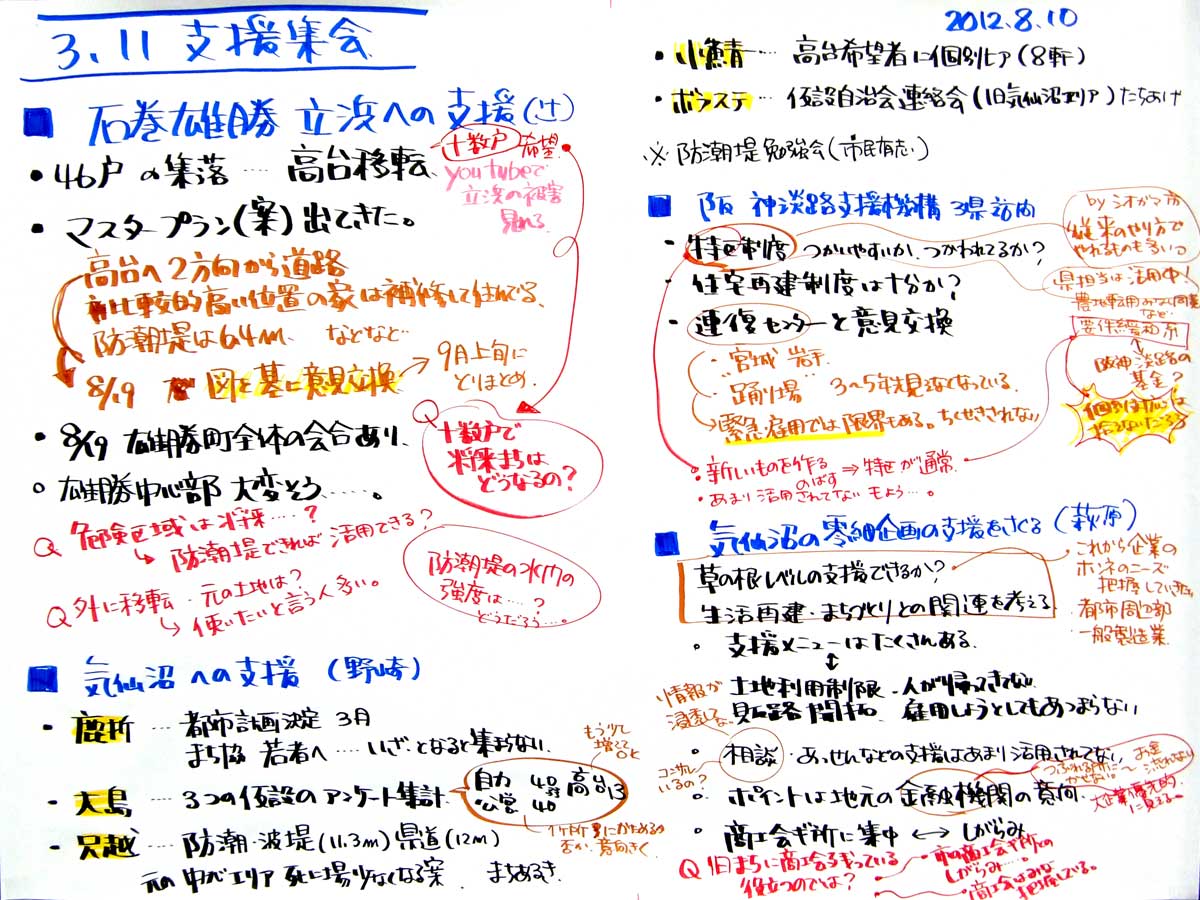 3.11 支援集会
■ 石巻雄勝 立浜への支援(辻)
・46戸の集落 …… 高台移転
十数戸 希望
youtubeで
立浜の被害
見れる
・マスタープラン(案)出てきた。
高台へ2方向から道路
比較的高い位置の家は補修して住んでいる、
防潮堤は6.4m、などなど
8/19 図を基に意見交換
9月上旬に
とりまとめ.
・8/19 雄勝町全体の会合あり、
○雄勝中心部 大変そう……。
Q 十数戸で
将来まちは
どうなるの?
Q 危険区域は将来….?
防潮堤できれば活用できる?
Q 外に移転・元の土地は?
使いたいと言う人多い。
防潮堤の水門の
強度は….?
どうだろう…。
■ 気仙沼への支援 (野崎)
・鹿折 …… 都市計画決定 3月
まち協 若者へ …. いざとなると集まらない.
・大島 …… 3つの仮設のアンケート集計
自力 48 高台13
公営 40
もう少し
増えて
OK
1ヶ所
意向きく
・只越 …… 防潮・波堤(11.3m) 県道(12m)
まちあるき.
2012.8.10
・小鯖 …. 高台希望者に個別ヒア(8軒)
・ボラステ …. 仮設自治会連絡会(旧気仙沼エリア)たちあげ
※ 防潮堤勉強会(市民有志)
■ 阪神淡路支援機構 3県訪問
・特区制度 つかいやすいか、つかわれてるか?
by シオガマ市
従来のやり方で
やれるものも多い
・住宅再建制度は十分か?
県担当は活用中!
など…
要件緩和
・連復センターと意見交換
・宮城 岩手
・踊り場 3〜5年先見えなくなっている.
→緊急雇用では限界もある。ちくせきされない
阪神・淡路の
基金?
個別対応は
拾えないだろう
・新しいものを作る ⇒ 特区が通常.
のばす
・あまり活用されてないもよう…。
■ 気仙沼の零細企画の支援をさぐる (萩原)
草の根レベルの支援できるか?
生活再建・まちづくりとの関連を考える
これから企業の
ホンネのニーズ
把握していきたい
都市周辺部
一般製造業.
・支援メニューはたくさんある.
↕
土地利用制限・人が帰ってきてない
販路開拓. 雇用しようとしてもあつまらない
情報が
浸透してな
○相談・あっせんなどの支援はあまり活用されてない
コンサル
いるの?
お金
流れない
○ポイントは地元の金融機関の意向.
大企業優先的
に見える.
・商工会ギ所に集中 ↔ しがらみ
Q 旧まちに商工会も残っている
役立つのでは?
・市の商工会ギ所との
しがらみ….
・商工会はみな
把握している。